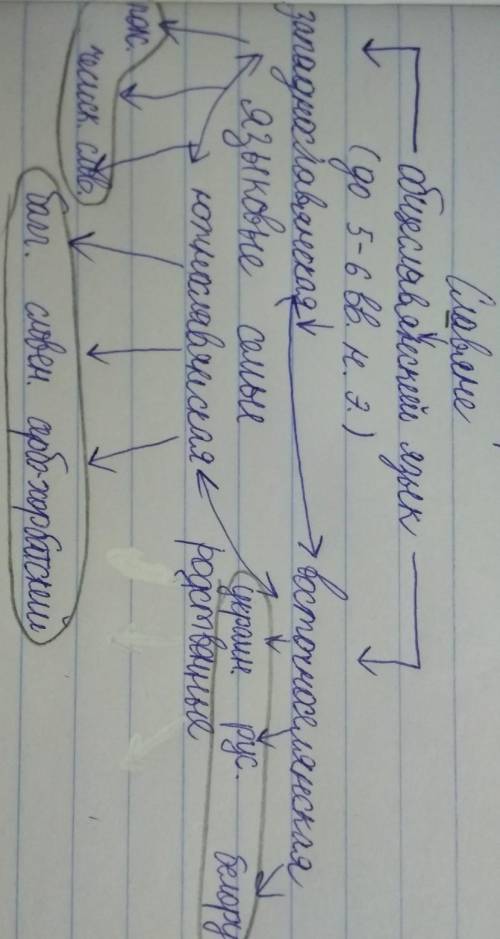 Славяне
общеславянский язык
(до 5-6 вв. н. э.)
западнославянская восточнослянская
языковые семьи
украин. рус. белорус
южнославянская родственные
пол. чешск. слов.
болг. словен. сербо-хорватский